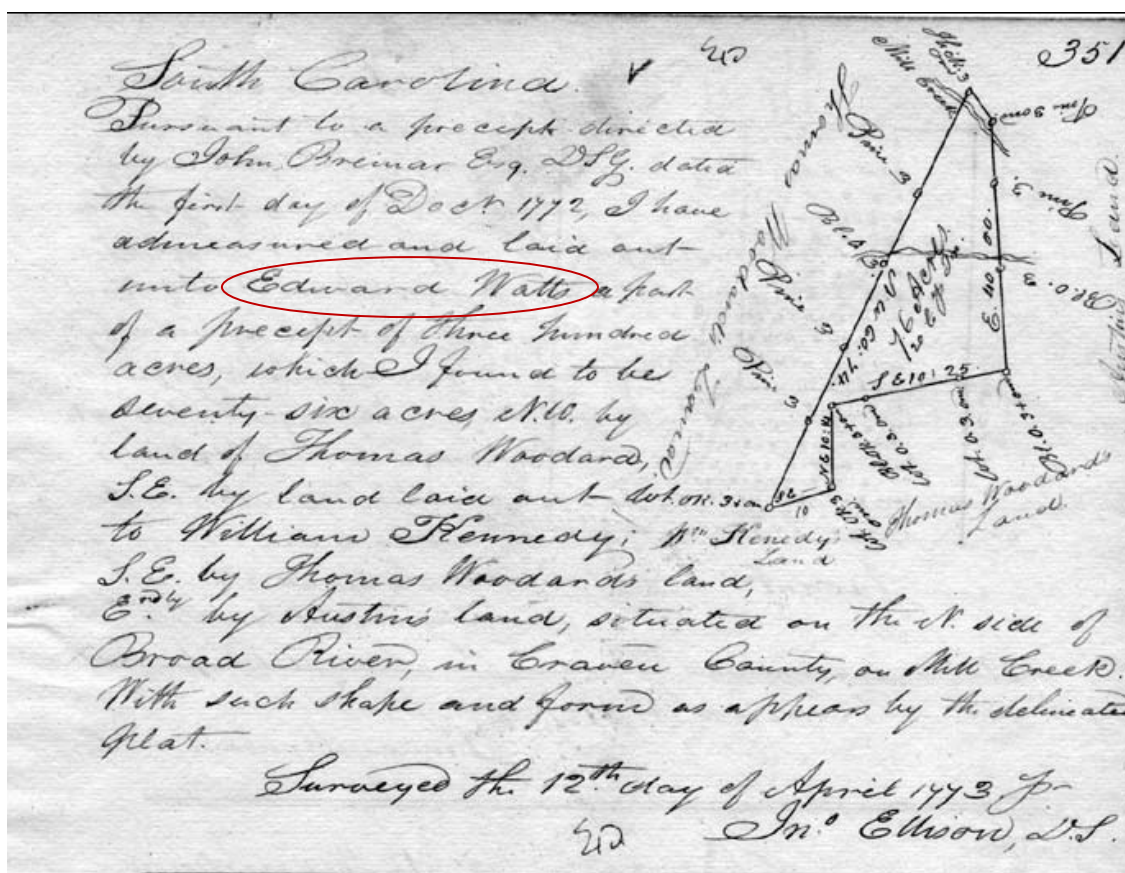 351
South Carolina.
Pursuant to a precept directed
by John Bremar Esq. D S G. dated
the first day of Dec r. 1772, I have
admeasured and laid out
unto Edward Watts a part
of a precept of three hundred
acres, which I found to be
seventy-six acres, N.W. by
land of Thomas Woodard,
S.E. by land laid out
to William Kennedy;
S.E. by Thomas Woodards land,
E.rd by by Austins land, situated on the N. side of
Broad River, in Craven County, on Mill Creek.
With such shape and form as appears by the delineated
plat.
Surveyed the 12th day of April 1773 pr
Jno Ellison, D.S.
Mill Creek
Pine 3
Bl. O. 3
Pine 3
Pine 3
Thomas Woodards Land
S W 60. 74.
76 Acres
E 40
S E 10: 25
N E 10: 14
Wt. O. 3 x on
Bl. O. 3 x on
Wt. OK. 3 x on
Wm Kenedy's
Land
Thomas Woodards
Land.
Pine 3.
Bl. O. 3
Land